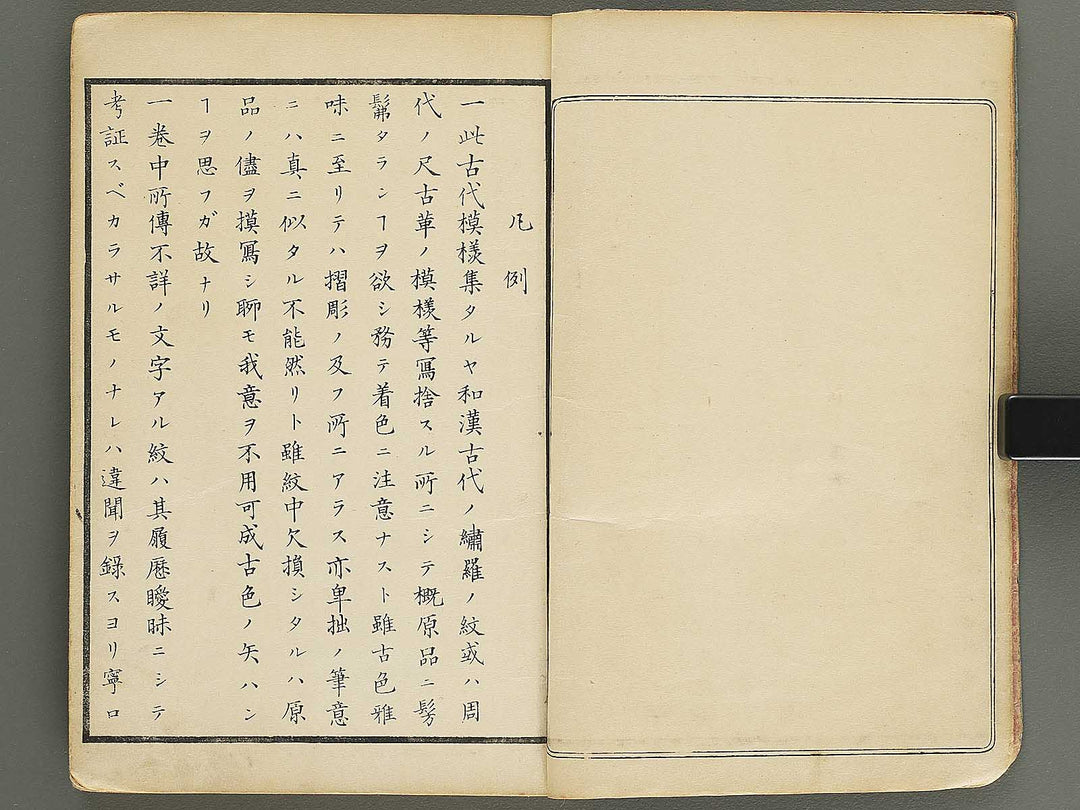 凡例
一此古代模様集タルヤ和漢古代ノ繡羅ノ紋或ハ周
代ノ尺古革ノ模様等寫捨スル所ニシテ概原品ニ髣
髴タランヿヲ欲シ務テ着色ニ注意ナスト雖古色雅
味ニ至リテハ摺彫ノ及フ所ニアラス亦卑拙ノ筆意
ニハ真ニ似タル不能然リト雖紋中欠損シタルハ原
品ノ儘ヲ摸寫シ聊モ我意ヲ不用可成古色ノ矢ハン
ヿヲ思フガ故ナリ
一巻中所傳不詳ノ文字アル紋ハ其履歴曖昧ニシテ
考証スベカラサルモノナレハ違聞ヲ錄スヨリ寧ロ